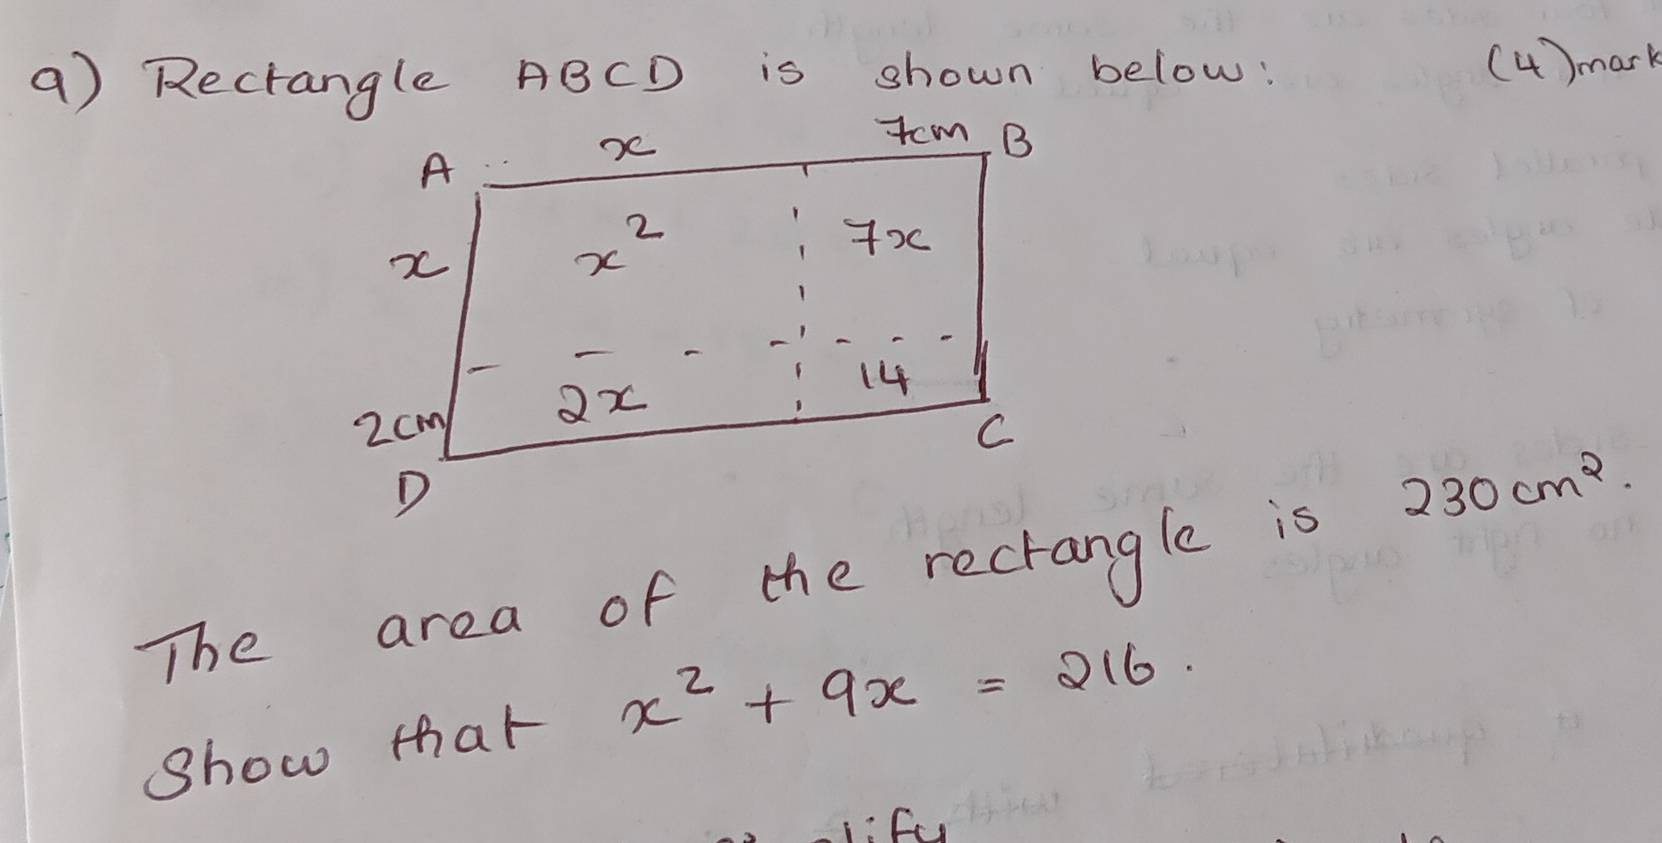 a) Rectangle ABCD is shown below: (4)mark
x 7cm B
A
x² 7x
x
2x 14
2cm
C
D
The area of the rectangle is 230cm².
Show that x² + 9x = 216.